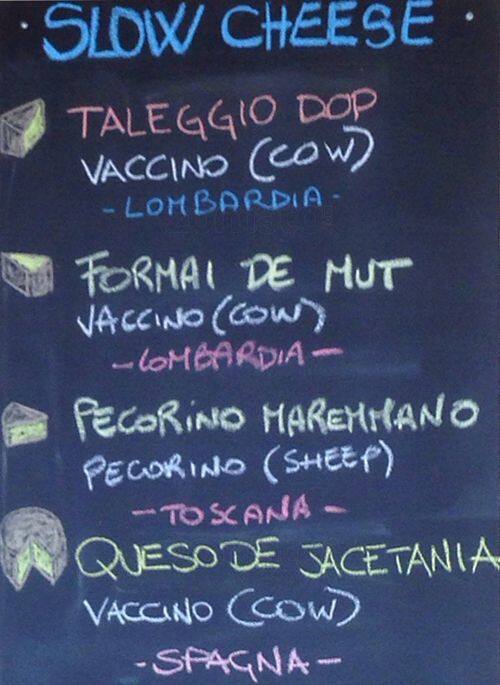 SLOW CHEESE
TALEGGIO DOP
VACCINO (COW)
-LOMBARDIA-
FORMAI DE MUT
VACCINO (COW)
-LOMBARDIA-
PECORINO MAREMMANO
PECORINO (SHEEP)
-TOSCANA-
QUESO DE JACETANIA
VACCINO (COW)
-SPAGNA-